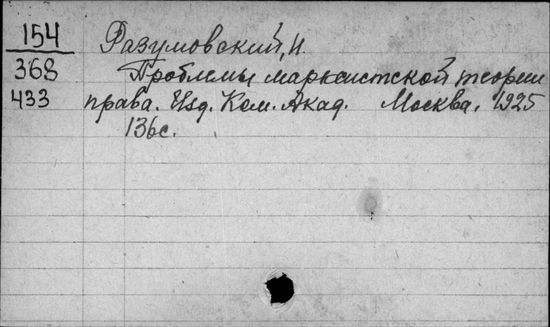 154
Разумовский, И.
368
Проблемы марксистской теории
433
права. Изд. Ком. Акад. Москва. 1925
136с.